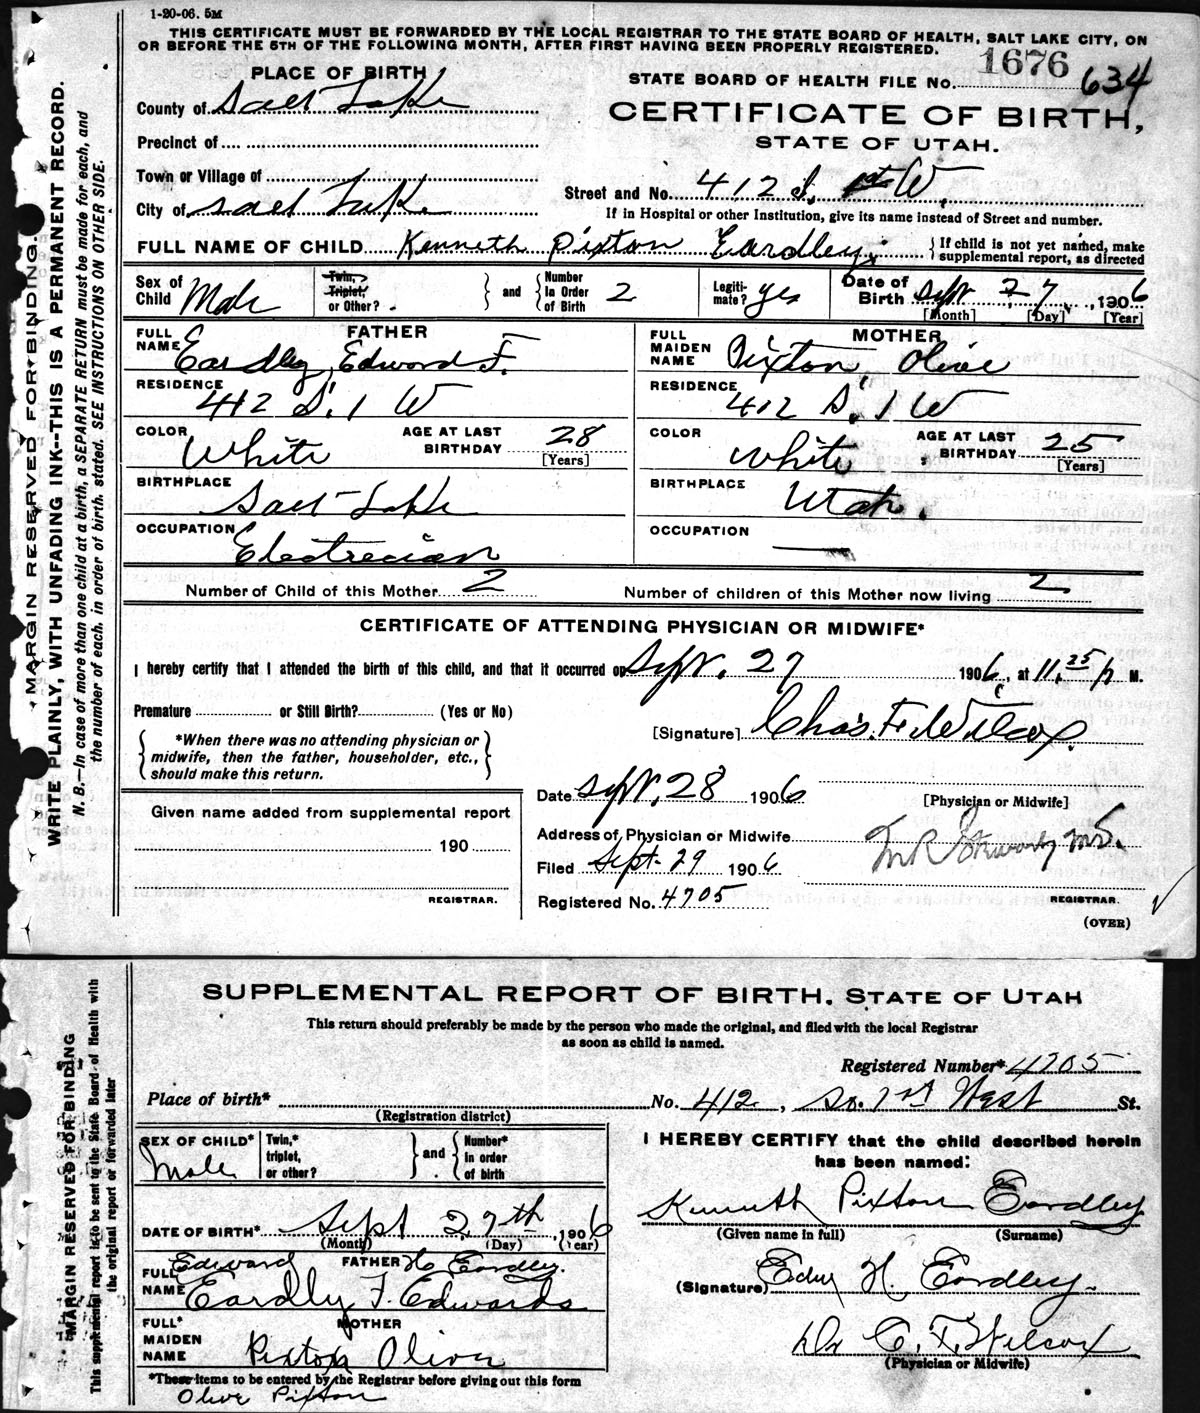 1-20-06. 5M
THIS CERTIFICATE MUST BE FORWARDED BY THE LOCAL REGISTRAR TO THE STATE BOARD OF HEALTH, SALT LAKE CITY, ON
OR BEFORE THE 5TH OF THE FOLLOWING MONTH, AFTER FIRST HAVING BEEN PROPERLY REGISTERED.
MARGIN RESERVED FOR BINDING.
WRITE PLAINLY, WITH UNFADING INK--THIS IS A PERMANENT RECORD.
N. B.—In case of more than one child at a birth, a SEPARATE RETURN must be made for each, and
the number of each, in order of birth, stated. SEE INSTRUCTIONS ON OTHER SIDE.
PLACE OF BIRTH
STATE BOARD OF HEALTH FILE No. 1676 634
County of Salt Lake
CERTIFICATE OF BIRTH,
STATE OF UTAH.
Precinct of
Town or Village of
Street and No. 412 S. 1st W.
City of Salt Lake
If in Hospital or other Institution, give its name instead of Street and number.
FULL NAME OF CHILD Kenneth Pixton Eardley. { If child is not yet named, make
supplemental report, as directed
Sex of Child Male
Twin, Triplet, or Other?
and
Number In Order of Birth 2
Legitimate? Yes
Date of Birth Sept 27, 1906
[Month] [Day] [Year]
FATHER
FULL NAME Eardley, Edward F.
RESIDENCE 412 S. 1 W
COLOR White AGE AT LAST BIRTHDAY 28
[Years]
BIRTHPLACE Salt Lake
OCCUPATION Electrecian
MOTHER
FULL MAIDEN NAME Pixton, Olive
RESIDENCE 412 S. 1 W
COLOR White AGE AT LAST BIRTHDAY 25
[Years]
BIRTHPLACE Utah.
OCCUPATION
Number of Child of this Mother 2 Number of children of this Mother now living 2
CERTIFICATE OF ATTENDING PHYSICIAN OR MIDWIFE*
I hereby certify that I attended the birth of this child, and that it occurred on Sept. 27 1906, at 11.25 p M.
Premature or Still Birth? (Yes or No)
[Signature] Chas. F. Wilcox.
*When there was no attending physician or
midwife, then the father, householder, etc.,
should make this return.
Date Sept. 28 1906
[Physician or Midwife]
Given name added from supplemental report
190
REGISTRAR.
Address of Physician or Midwife
Filed Sept. 29 1906
Registered No. 4705
REGISTRAR.
(OVER)
MARGIN RESERVED FOR BINDING
This supplemental report is to be sent to the State Board of Health with
the original report or forwarded later
SUPPLEMENTAL REPORT OF BIRTH, STATE OF UTAH
This return should preferably be made by the person who made the original, and filed with the local Registrar
as soon as child is named.
Registered Number* 4705
Place of birth* No. 412, So. 1st West St.
(Registration district)
SEX OF CHILD* Male
Twin,* triplet, or other?
and
Number* In order of birth
DATE OF BIRTH* Sept 27th, 1906
(Month) (Day) (Year)
Edward FATHER H Eardley.
FULL NAME Eardley F. Edwards
MOTHER
FULL* MAIDEN NAME Pixton Oliver
*These items to be entered by the Registrar before giving out this form
Olive Pixton
I HEREBY CERTIFY that the child described herein
has been named:
Kenneth Pixton Eardley
(Given name in full) (Surname)
(Signature) Edw H. Eardley.
Dr C. F. Wilcox
(Physician or Midwife)